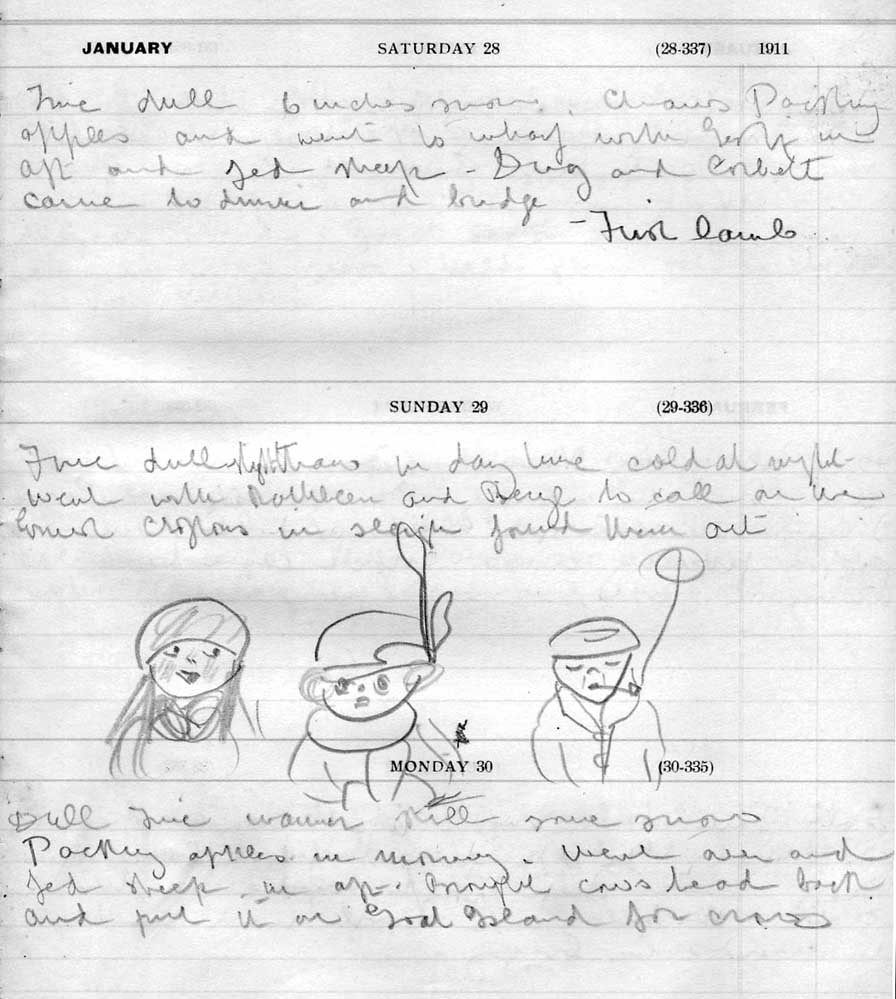 JANUARY SATURDAY 28 (28-337) 1911
Fine dull 6 inches snow. Packing
apples and went to wharf with in
aft and fed sheep - Doug and Corbett
came to dinner and bridge
- First lamb
SUNDAY 29 (29-336)
Fine dull slight thaw in day time cold at night
went with Kathleen and Doug to call on the
Croftons in found them out
MONDAY 30 (30-335)
Dull fine warmer still some snow
Packing apples in morning. Went over and
fed sheep in aft. Brought cows head back
and put it on Goat Island for crows